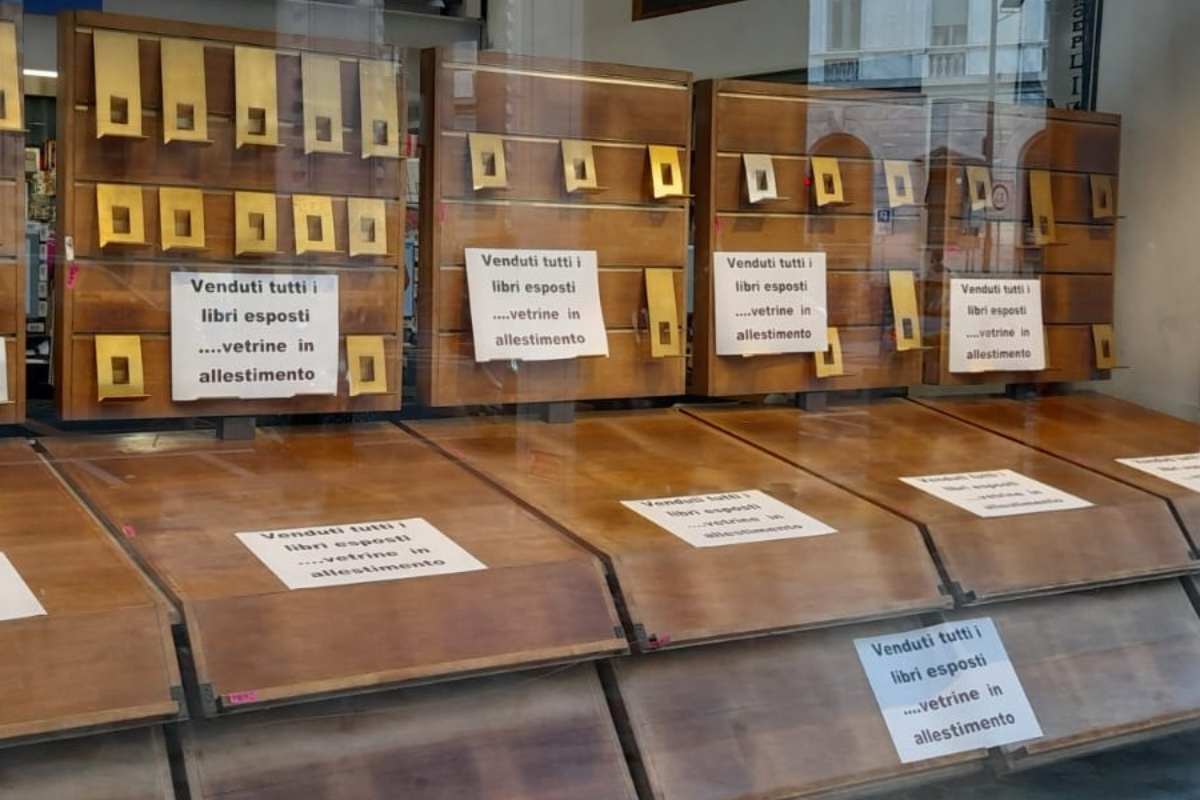 Venduti tutti i
libri esposti
....vetrine in
allestimento
Venduti tutti i
libri esposti
....vetrine in
allestimento
Venduti tutti i
libri esposti
....vetrine in
allestimento
Venduti tutti i
libri esposti
....vetrine in
allestimento
Venduti tutti i
libri esposti
....vetrine in
allestimento
Venduti tutti i
libri esposti
....vetrine in
allestimento
Venduti tutti i
libri esposti
....vetrine in
allestimento
Venduti tutti i
libri esposti
....vetrine in
allestimento